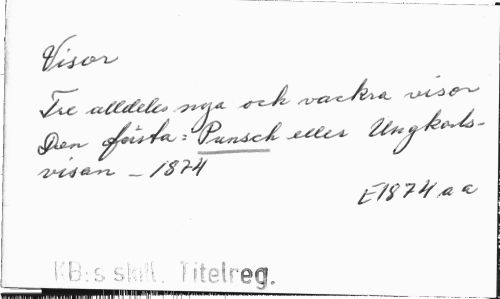 Visor
Tre alldeles nya och vackra visor
Den första: Punsch eller Ungkarls-
visan – 1874
E1874 a a
KB:s skill. Titelreg.